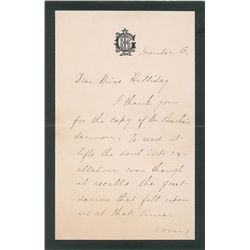 Mentor O.
Dear Miss Halliday
I thank you
for the copy of the
sermon. To read it
lifts the soul into ex-
altation even though
it recalls the great
sorrow that fell upon
us at that time.